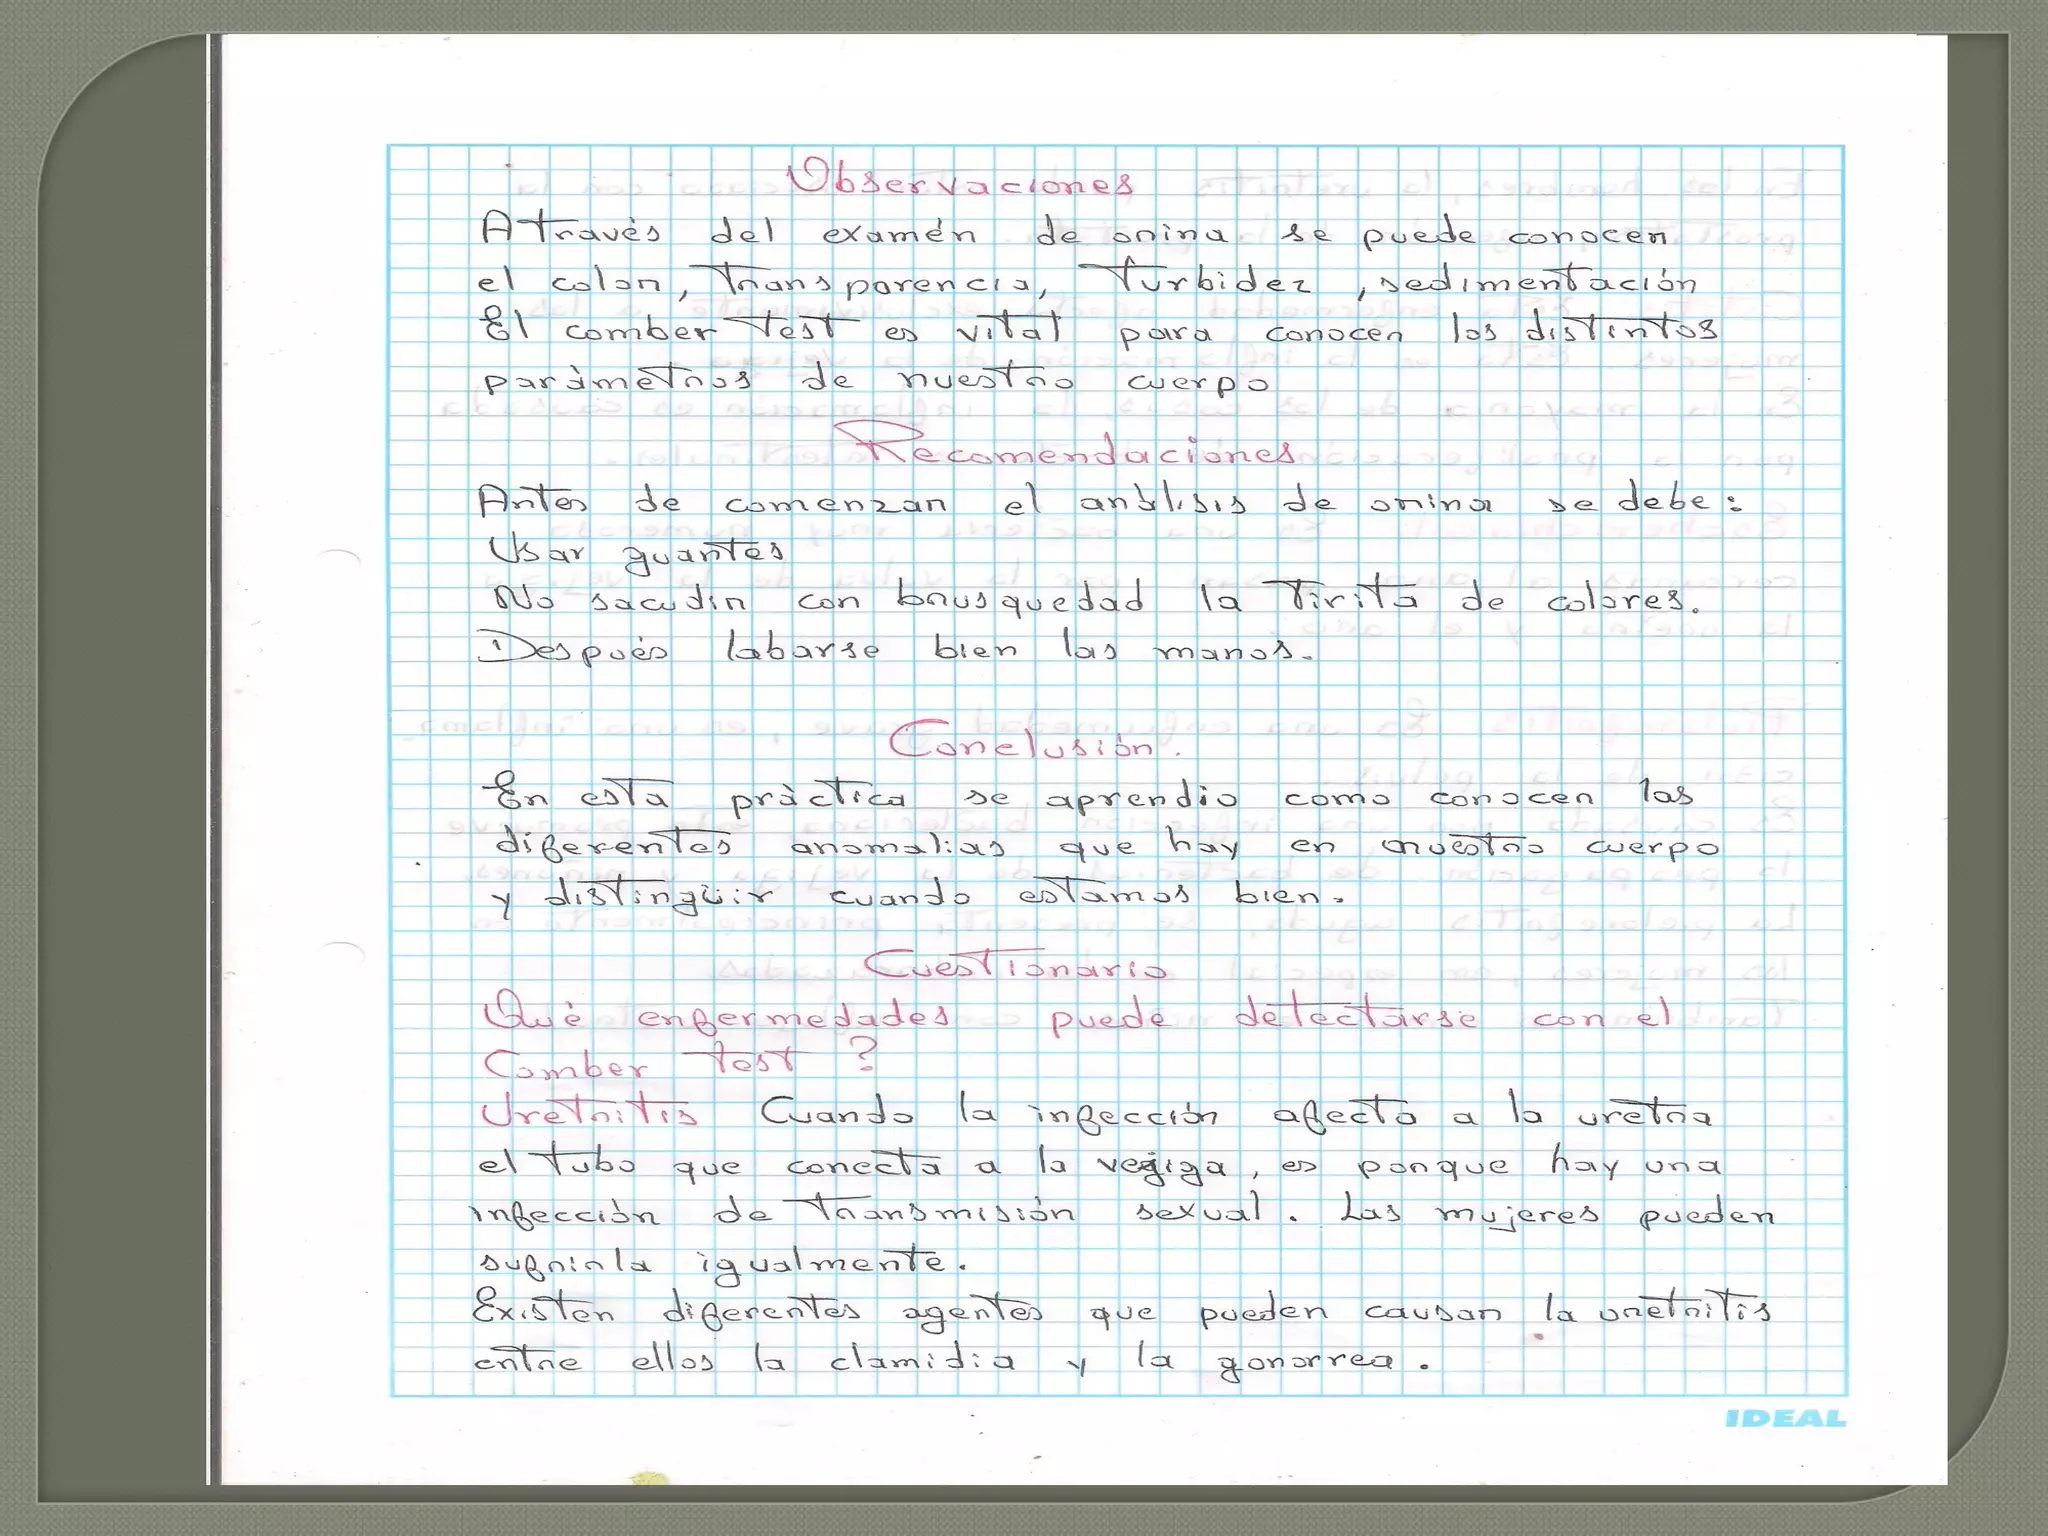 Observaciones
Através del examén de orina se puede conocer
el color, transparencia, turbidez, sedimentación
El comber test es vital para conocer los distintos
parámetros de nuestro cuerpo
Recomendaciones
Antes de comenzar el análisis de orina se debe:
Usar guantes
No sacudir con brusquedad la tirita de colores.
Después labarse bien las manos.
Conclusión.
En esta práctica se aprendio como conocer las
diferentes anomalias que hay en nuestro cuerpo
y distingüir cuando estamos bien.
Cuestionario
Qué enfermedades puede detectarse con el
Comber test?
Uretritis Cuando la infección afecta a la uretra
el tubo que conecta a la vejiga, es porque hay una
infección de transmisión sexual. Las mujeres pueden
sufrirla igualmente.
Existen diferentes agentes que pueden causar la uretritis
entre ellos la clamidia y la gonorrea.
IDEAL